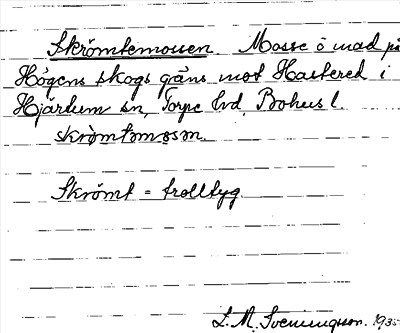 Skrömtemossen Mosse o mad på
Högens skogs gräns mot Hastered i
Hjärtum sn, Torpe hd, Bohusl.
skròmtemosən.
Skrömt = trolltyg.
S. M. Svenungsson. 1935